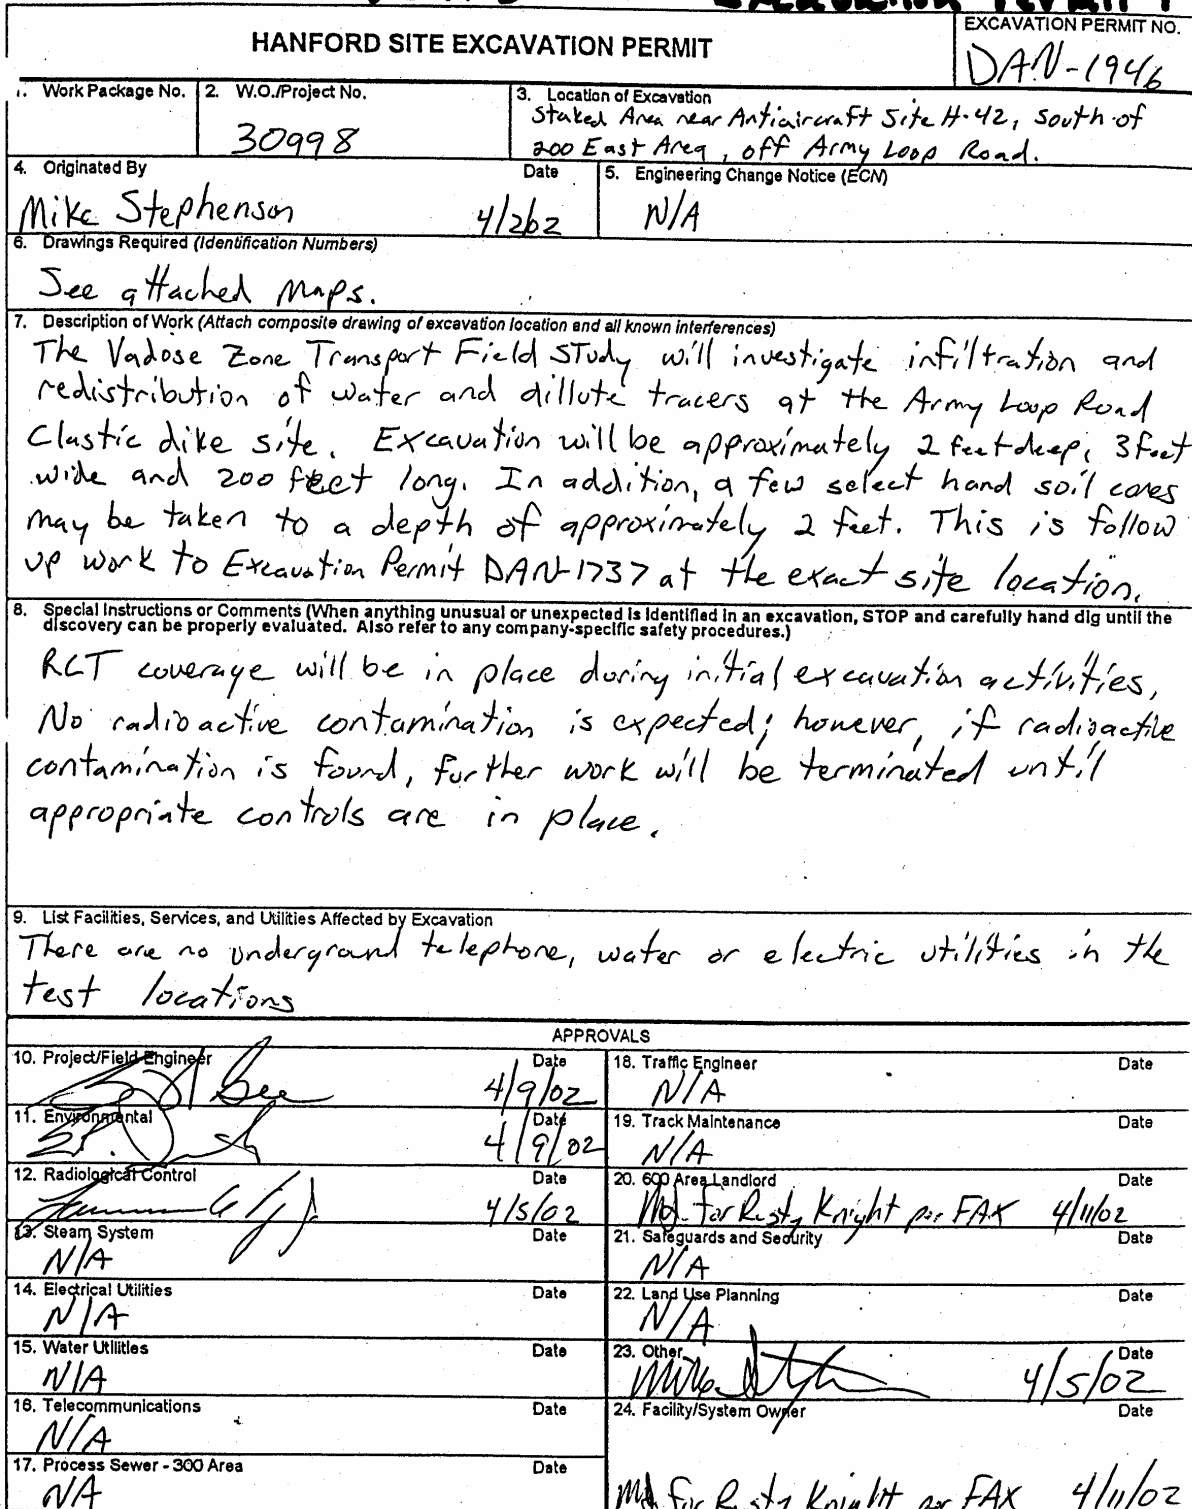 Excavation Permit
EXCAVATION PERMIT NO.
HANFORD SITE EXCAVATION PERMIT
DAN-1946
1. Work Package No.
2. W.O./Project No.
30998
3. Location of Excavation
Staked Area near Antiaircraft Site H-42, south of
200 East Area, off Army Loop Road.
4. Originated By
Date
Mike Stephenson
4/2/02
5. Engineering Change Notice (ECN)
N/A
6. Drawings Required (Identification Numbers)
See attached Maps.
7. Description of Work (Attach composite drawing of excavation location and all known interferences)
The Vadose Zone Transport Field STudy will investigate infiltration and
redistribution of water and dillute tracers at the Army Loop Road
Clastic dike site. Excavation will be approximately 2 feet deep, 3 feet
wide and 200 feet long. In addition, a few select hand soil cores
may be taken to a depth of approximately 2 feet. This is follow
up work to Excavation Permit DAN-1737 at the exact site location.
8. Special Instructions or Comments (When anything unusual or unexpected is identified in an excavation, STOP and carefully hand dig until the
discovery can be properly evaluated. Also refer to any company-specific safety procedures.)
RCT coverage will be in place during initial excavation activities.
No radioactive contamination is expected; however, if radioactive
contamination is found, further work will be terminated until
appropriate controls are in place.
9. List Facilities, Services, and Utilities Affected by Excavation
There are no underground telephone, water or electric utilities in the
test locations
APPROVALS
10. Project/Field Engineer
Date
4/9/02
11. Environmental
Date
4/9/02
12. Radiological Control
Date
4/5/02
13. Steam System
Date
N/A
14. Electrical Utilities
Date
N/A
15. Water Utilities
Date
N/A
16. Telecommunications
Date
N/A
17. Process Sewer - 300 Area
Date
N/A
18. Traffic Engineer
Date
N/A
19. Track Maintenance
Date
N/A
20. 600 Area Landlord
Date
for Rusty Knight per FAX 4/11/02
21. Safeguards and Security
Date
N/A
22. Land Use Planning
Date
N/A
23. Other
Date
4/5/02
24. Facility/System Owner
Date
for Rusty Knight per FAX 4/11/02